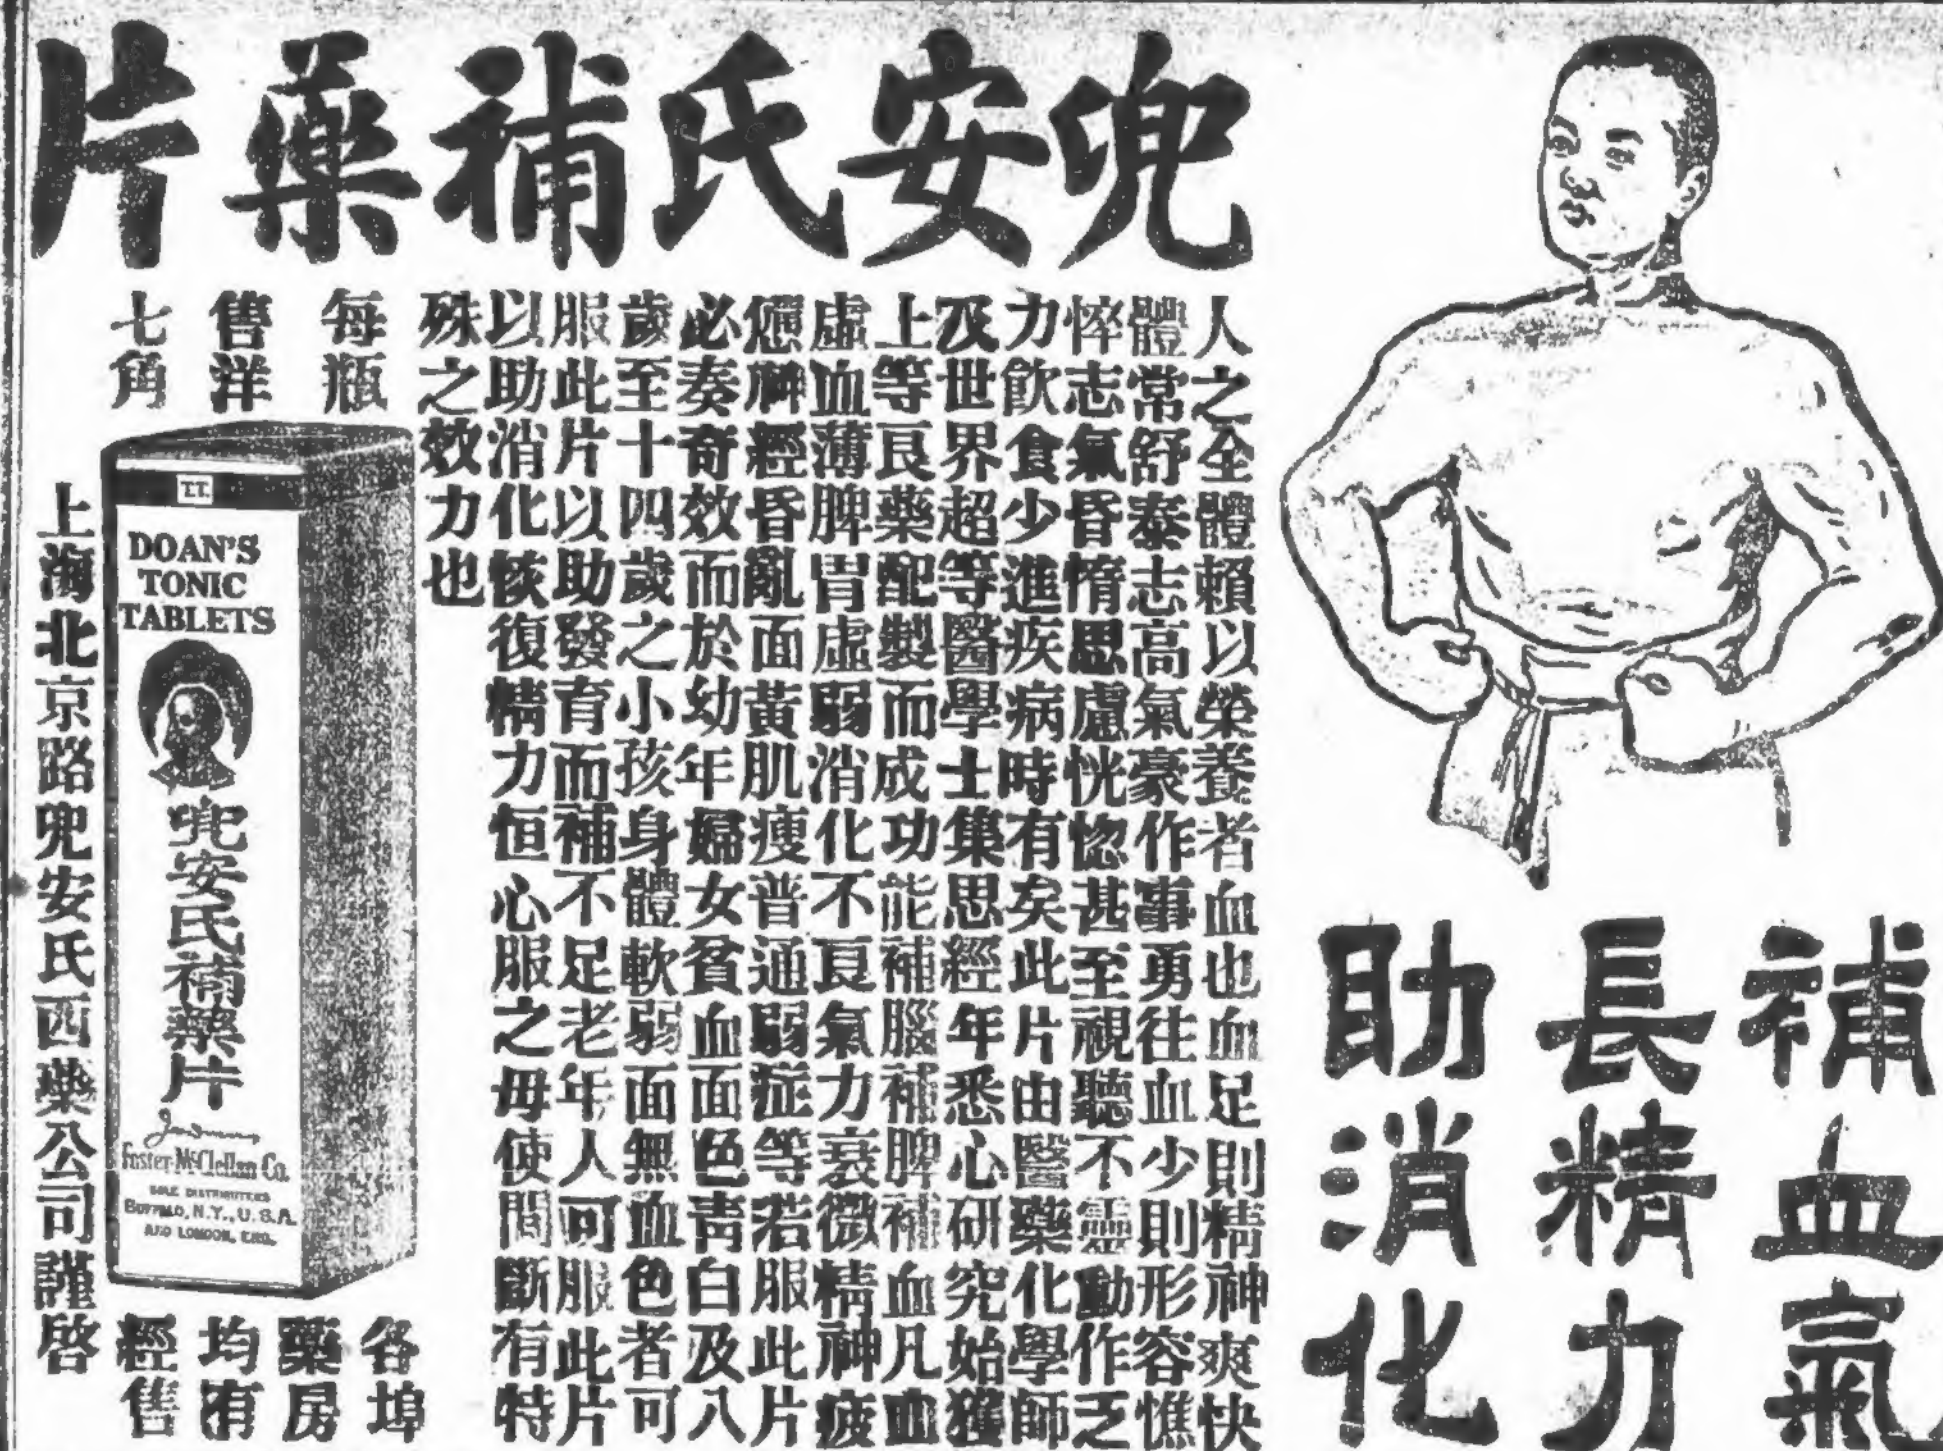 兜安氏補藥片
補血氣
長精力
助消化
人之全體賴以榮養者血也血足則精神爽快
體常舒泰志高氣豪作事勇往血少則形容憔
悴志氣昏惰思慮恍惚甚至視聽不靈動作乏
力飲食少進疾病時有矣此片由醫藥化學師
及世界超等醫學士集思經年悉心研究始獲
上等良藥配製而成功能補腦補脾補血凡血
虛血薄脾胃虛弱消化不良氣力衰微精神疲
憊神經昏亂面黃肌瘦普通弱症等若服此片
必奏奇效而於幼年婦女貧血面色青白及八
歲至十四歲之小孩身體軟弱面無血色者可
服此片以助發育而補不足老年人可服此片
以助消化恢復精力恒心服之毋使間斷有特
殊之效力也
每瓶
售洋
七角
T.T.
DOAN'S
TONIC
TABLETS
兜安氏補藥片
Foster-McClellan Co.
SOLE DISTRIBUTERS
BUFFALO, N.Y., U.S.A.
AND LONDON, ENG.
各埠
藥房
均有
經售
上海北京路兜安氏西藥公司謹啓